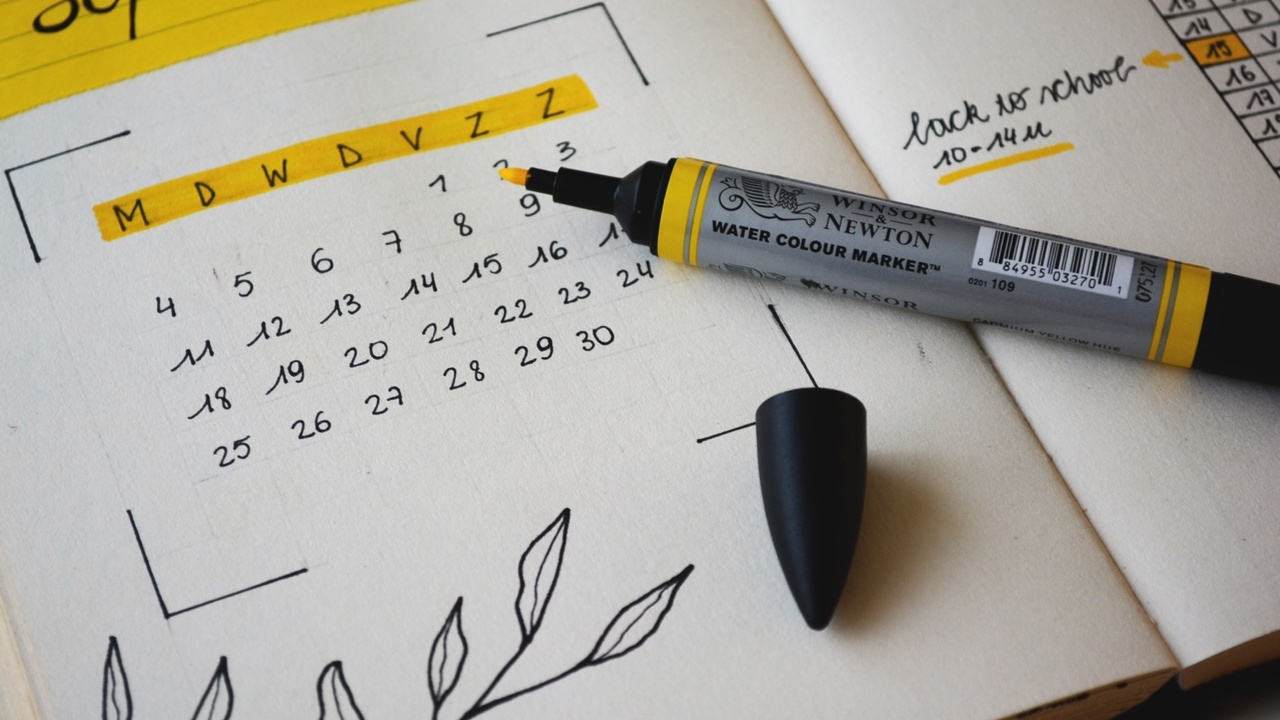 Sep
M D W D V Z Z
1 2 3
4 5 6 7 8 9
11 12 13 14 15 16
18 19 20 21 22 23 24
25 26 27 28 29 30
WINSOR
&
NEWTON
WATER COLOUR MARKER™
WINSOR
8 84955 03270 1
0201 109
CADMIUM YELLOW HUE
back to school
10-14u
14 D
15 V
16
17